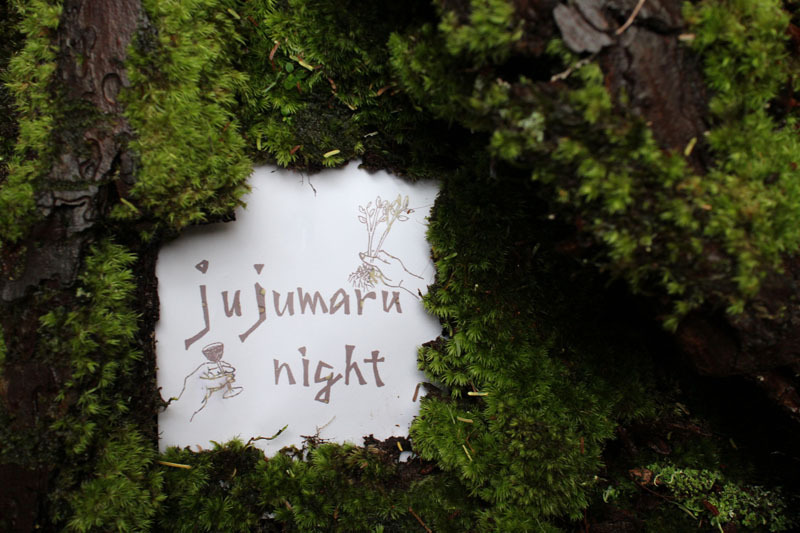 jujumaru
night